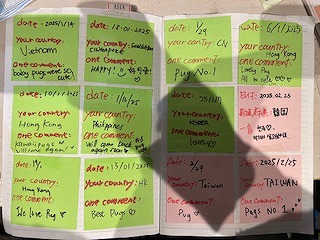 ASIA
date: 2025/1/14
your country:
Vietnam
one comment:
baby pugs were so
cute!
date: 18-01-2025
your country:
one comment:
HAPPY!
date: 10/
your country:
Hong Kong
one comment:
Kawaii pugs
will come again!
date: 1/12/25
your country:
Philippines
one comment:
will come back
again
date:
your country:
Hong Kong
one comment:
We love Pug
date: 13/01/2025
your country: HK
one comment:
Best Pugs
date:
1/29
your country: CN
one comment:
Pug No.1
date: 6/1/2025
your country:
Hong Kong
one comment:
Lovely Pug
All so cute
date:
your country:
Korea
one comment:
lovely
日付: 2025.02.25
韓国
一言
Date:
2/29
your country:
Taiwan
one comment:
Pug
Date: 2025/2/25
Your
Country: TAIWAN
One
Comment:
Pugs NO.1